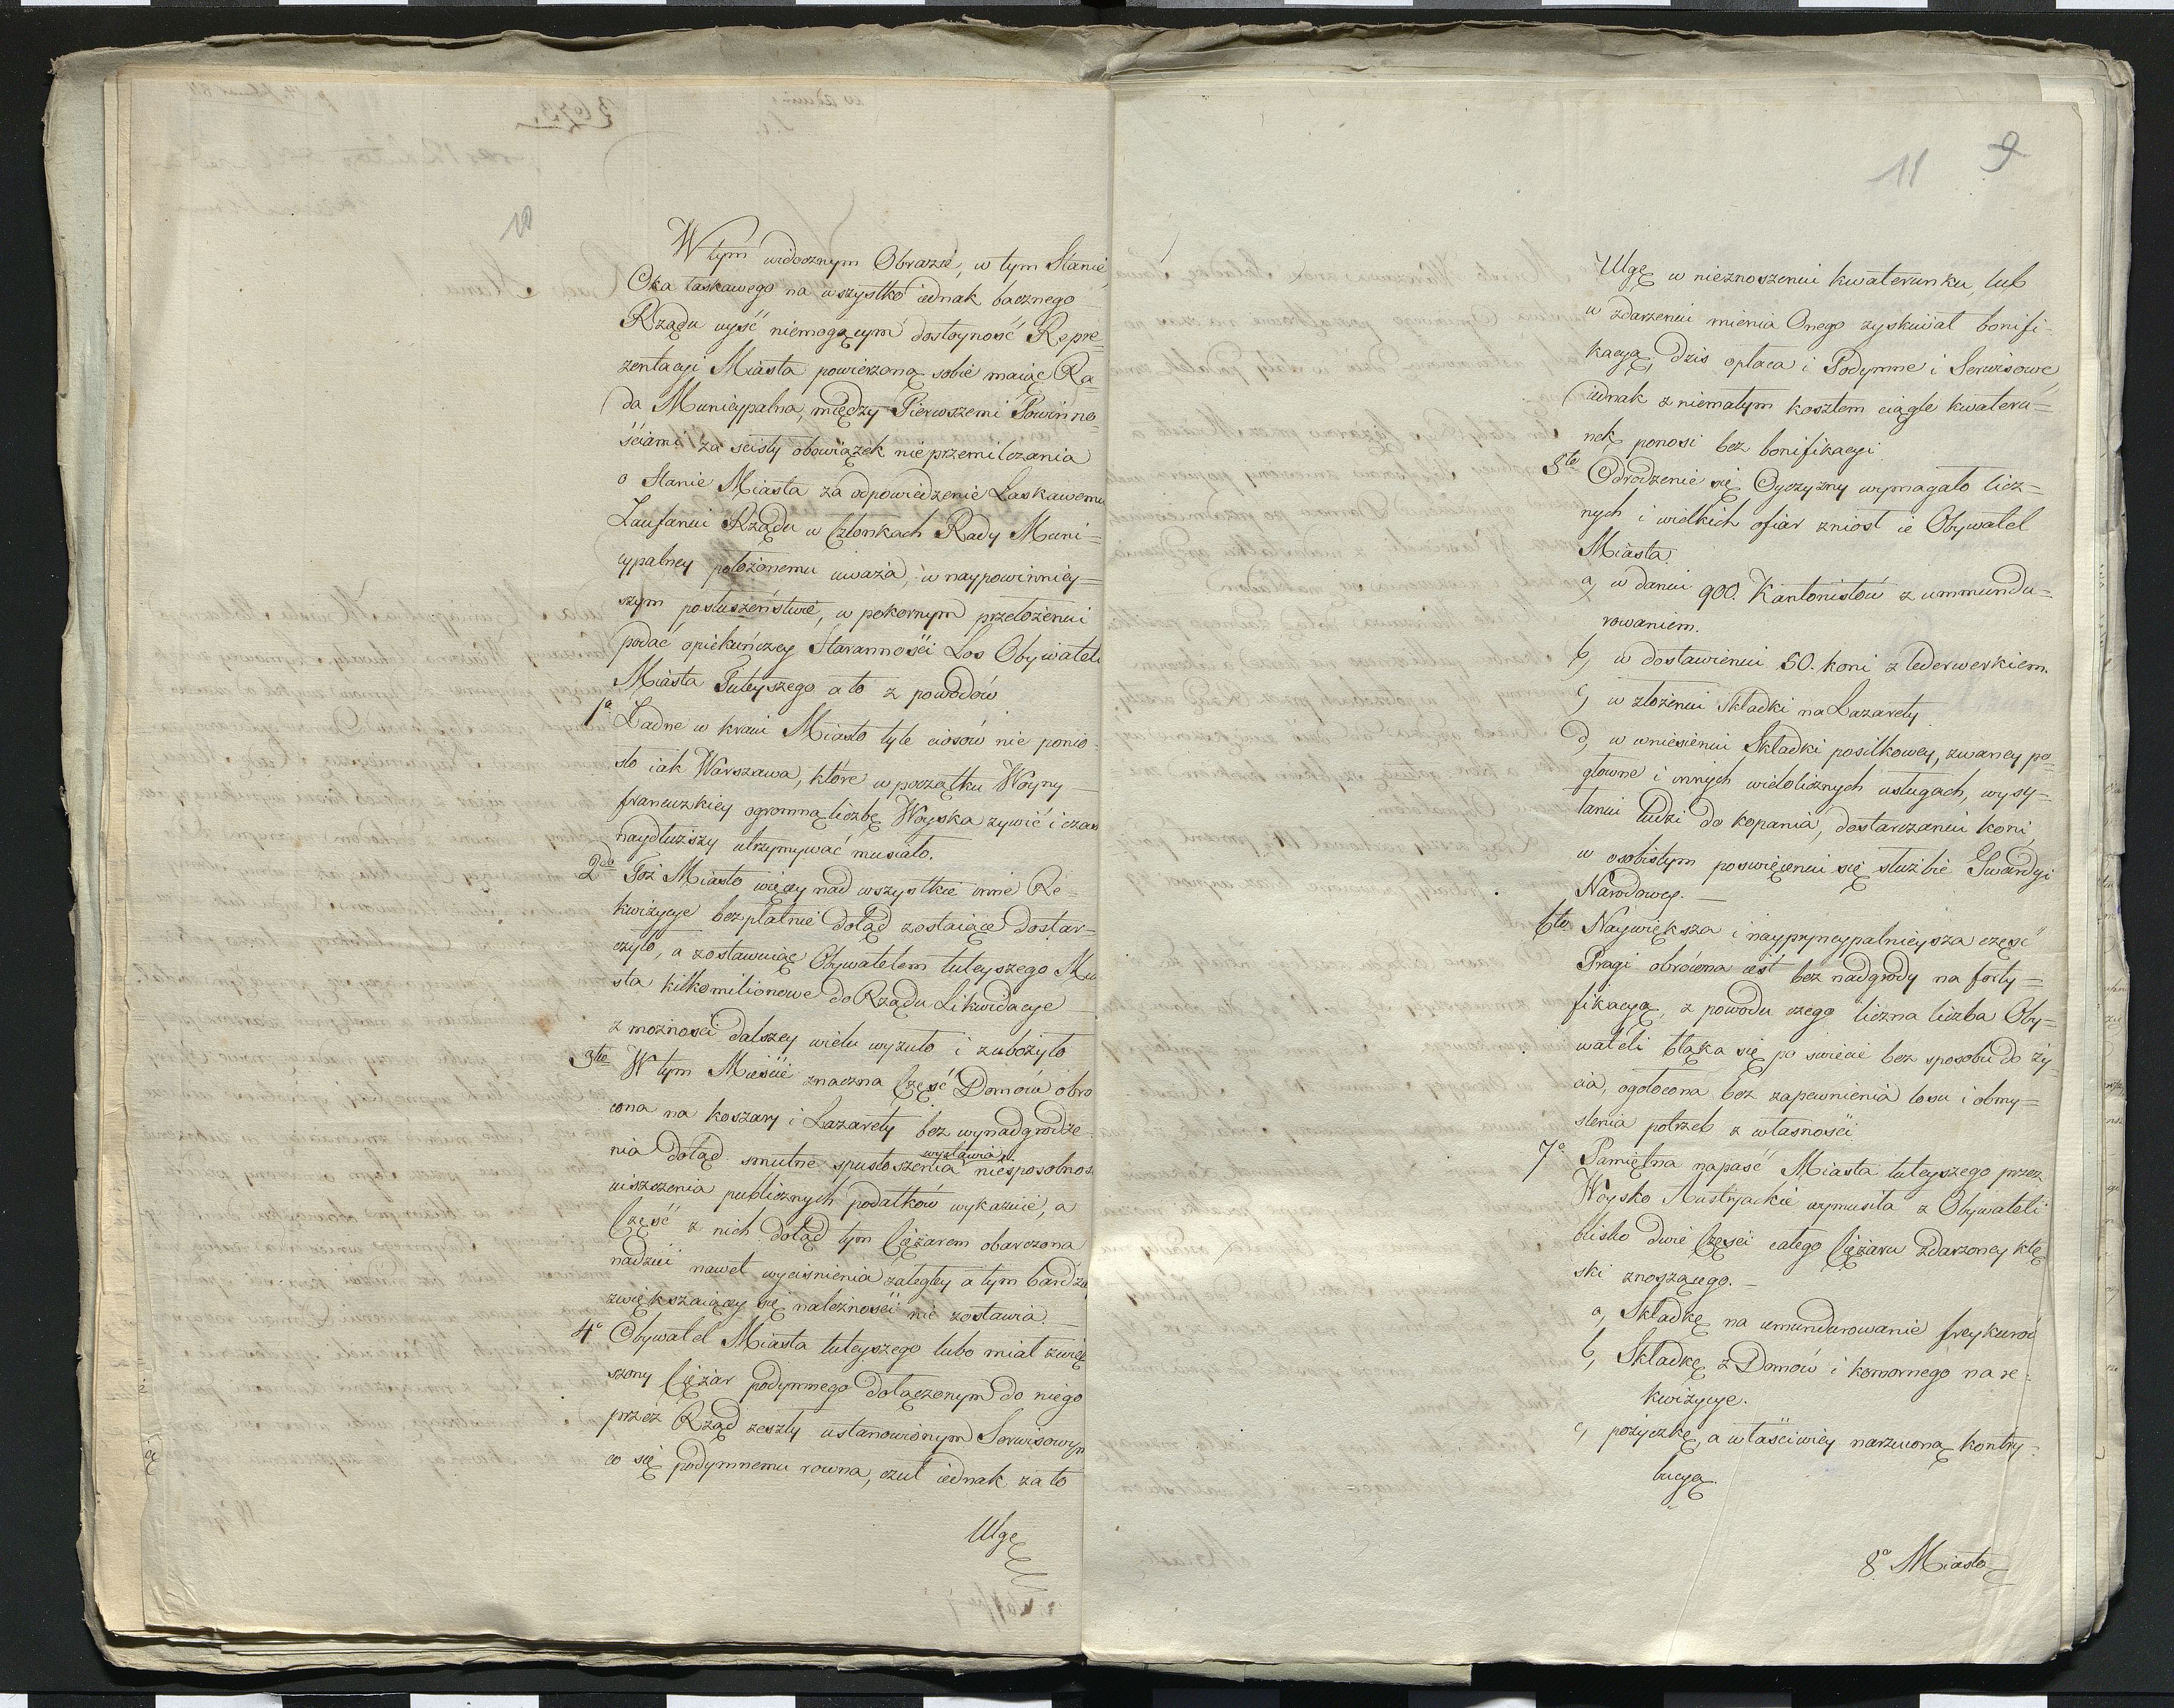 10
W tym widocznym Obrazie, w tym Stanie,
Oka łaskawego na wszystko iednak bacznego
Rządu uyść niemogącym dostoyność Repre-
zentacyi Miasta powierzoną sobie maiąc Ra-
da Municypalna, między Pierwszemi Powinno-
ściami za scisły obowiązek nieprzemilczania
o Stanie Miasta za odpowiedzenie Łaskawemu
Zaufaniu Rządu w Członkach Rady Muni=
cypalney położonemu uważa, w naypowinniey=
szym posłuszeństwie, w pokornym przełożeniu
podać opiekuńczey Staranności Los Obywateli
Miasta Tuteyszego a to z powodów
1º Żadne w kraiu Miasto tyle ciosów nie ponio-
sło iak Warszawa, które w początku Woyny
francuzkiey ogromną liczbę Woyska żywić i czas
naydłuższy utrzymywać musiało.
2do Toż Miasto więcey nad wszystkie inne Re-
kwizycye bezpłatnie dotąd zostaiące dostar-
czyło, a zostawuiąc Obywatelem tuteyszego Mia
sta kilkomilionowe do Rządu Likwidacye
z możności dalszey wielu wyzuło i zubożyło
3tio W tym Mieście znaczna Część Domów obro
cona na koszary i Lazarety bez wynadgrodze-
nia dotąd smutne spustoszenia wystawia niesposobnos
uiszczenia publicznych podatków wykazuie, a
Część z nich dotąd tym Ciężarem obarczona
nadziei nawet wyciśnienia zaległey a tym bardzie
zwiększaiącey się należności nie zostawia.
4º Obywatel Miasta tuteyszego lubo miał zwięk
szony Ciężar podymnego dołączonym do niego
przez Rząd zeszły ustanowionym Serwisowym
co się podymnemu rowna, czuł iednak za to
Ulgę
11 9
Ulgę w nieznoszeniu kwaterunku, lub
w zdarzeniu mienia Onego zyskiwał bonifi-
kacyą, dzis opłaca i Podymne i Serwisowe
iednak z niemałym kosztem ciągle kwateru=
nek ponosi bez bonifikacyi
5to Odrodzenie się Oyczyzny wymagało licz=
nych i wielkich ofiar zniosł ie Obywatel
Miasta.
a, w daniu 900. Kantonistów z ummundu=
rowaniem.
b, w dostawieniu 50. koni z lederwerkiem.
c, w złożeniu Składki na Lazarety
d, w wniesieniu Składki posiłkowey, zwaney po-
głowne i innych wielolicznych usługach, wysy=
łaniu ludzi do kopania, dostarczaniu koni,
w osobistym poswięceniu się służbie Gwardyi
Narodowey. —
6to Naywiększa i naypryncypalnieysza część
Pragi obrócona iest bez nadgrody na forty=
fikacyą, z powodu czego liczna liczba Oby=
wateli błąka się po swiecie bez sposobu do ży-
cia, ogołocona bez zapewnienia losu i obmy=
slenia potrzeb z własności
7º Pamiętna napaść Miasta tuteyszego przez
Woysko Austryackie wymusiła z Obywateli
blisko dwie Części całego Ciężaru zdarzoney klę
ski znoszącego. —
a, Składkę na umundurowanie freykurow
b, Składkę z Domów i komornego na re-
kwizycye.
c, pożyczkę, a właściwiey narzuconą kontry-
bucyą.
8º Miasto